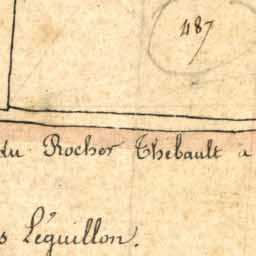 487
du Rocher Thebault a
s Léguillon.